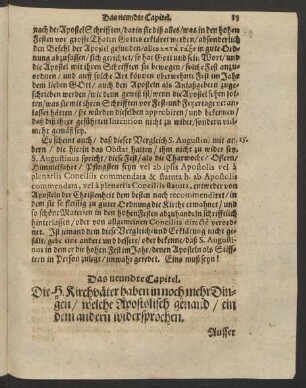 Das neundte Capitel. 83
nach der Apostel Schrifften / darin sie diß alles / was in der hohen
Festen vor grosse Thaten Gottes erkläret werden / absonderlich
den Befehl der Apostel gefunden / alles κατὰ τάξιν in gute Ord-
nung abzufassen / sich gerichtet / so hat Gott und sein Wort / und
die Apostel mit ihren Schrifften sie bewogen / solche Fest anzu-
ordnen / und auff solche Art können oberwehnte Fest im Jahr
dem lieben Gott / auch den Aposteln als Antagebern zuge-
schrieben werden / weil dem gewiß also / wenn die Apostel sol-
ten ihren Schrifften vor Fest- und Feyertage veran-
lasset hetten / sie würden dieselben approbiren / und befinden /
daß diß ihrer geführten Intention nicht zu wider / sondern viel-
mehr gemäß sey.
Es scheint auch / daß dieser Vergleich S. Augustin mit an- 15.
dern / die hierin das Obstat halten / ihm nicht zu wider sey.
S. Augustinus spricht / diese Fest / als die Charwoche / Ostern /
Himmelfahrt / Pfingsten seyn vel ab ipsis Apostolis vel à
plenariis Conciliis commendata & statuta h. ab Apostolis
commendata, vel à plenariis Conciliis statuta, entweder von
Aposteln der Christenheit dem besten nach recommendirt / in
dem sie so fleissig zu guter Ordnung die Kirche ermahnet / und
so schöne Materien in den hohen Festen abzuhandeln schrifftlich
hinterlassen / oder von allgemeinen Conciliis directè verord-
net. Ist jemand dem diese Vergleich- und Erklärung nicht ge-
fällt: gebe eine andere und bessere / oder bekenne / daß S. Augusti-
nus in dem er die hohen Fest im Jahr / denen Aposteln als Stiff-
tern in Person zulegt / unwahr geredet. Eins muß seyn!
Das neundte Capitel.
Die H. Kirchväter haben in noch mehr Din-
gen / welche Apostolisch genand / ein
dem andern widersprochen.
Ausser